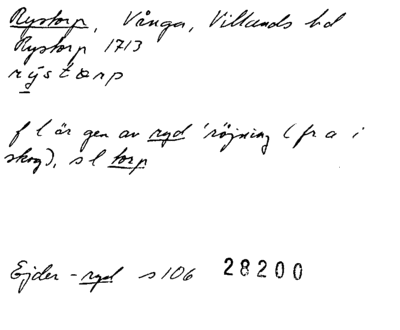 Rystorp, Vånga, Villands hd
Rystorp 1713
rystorp
f l är gen av ryd 'röjning (fr a i
skog), s l torp
Ejder - ryd s 106 28200